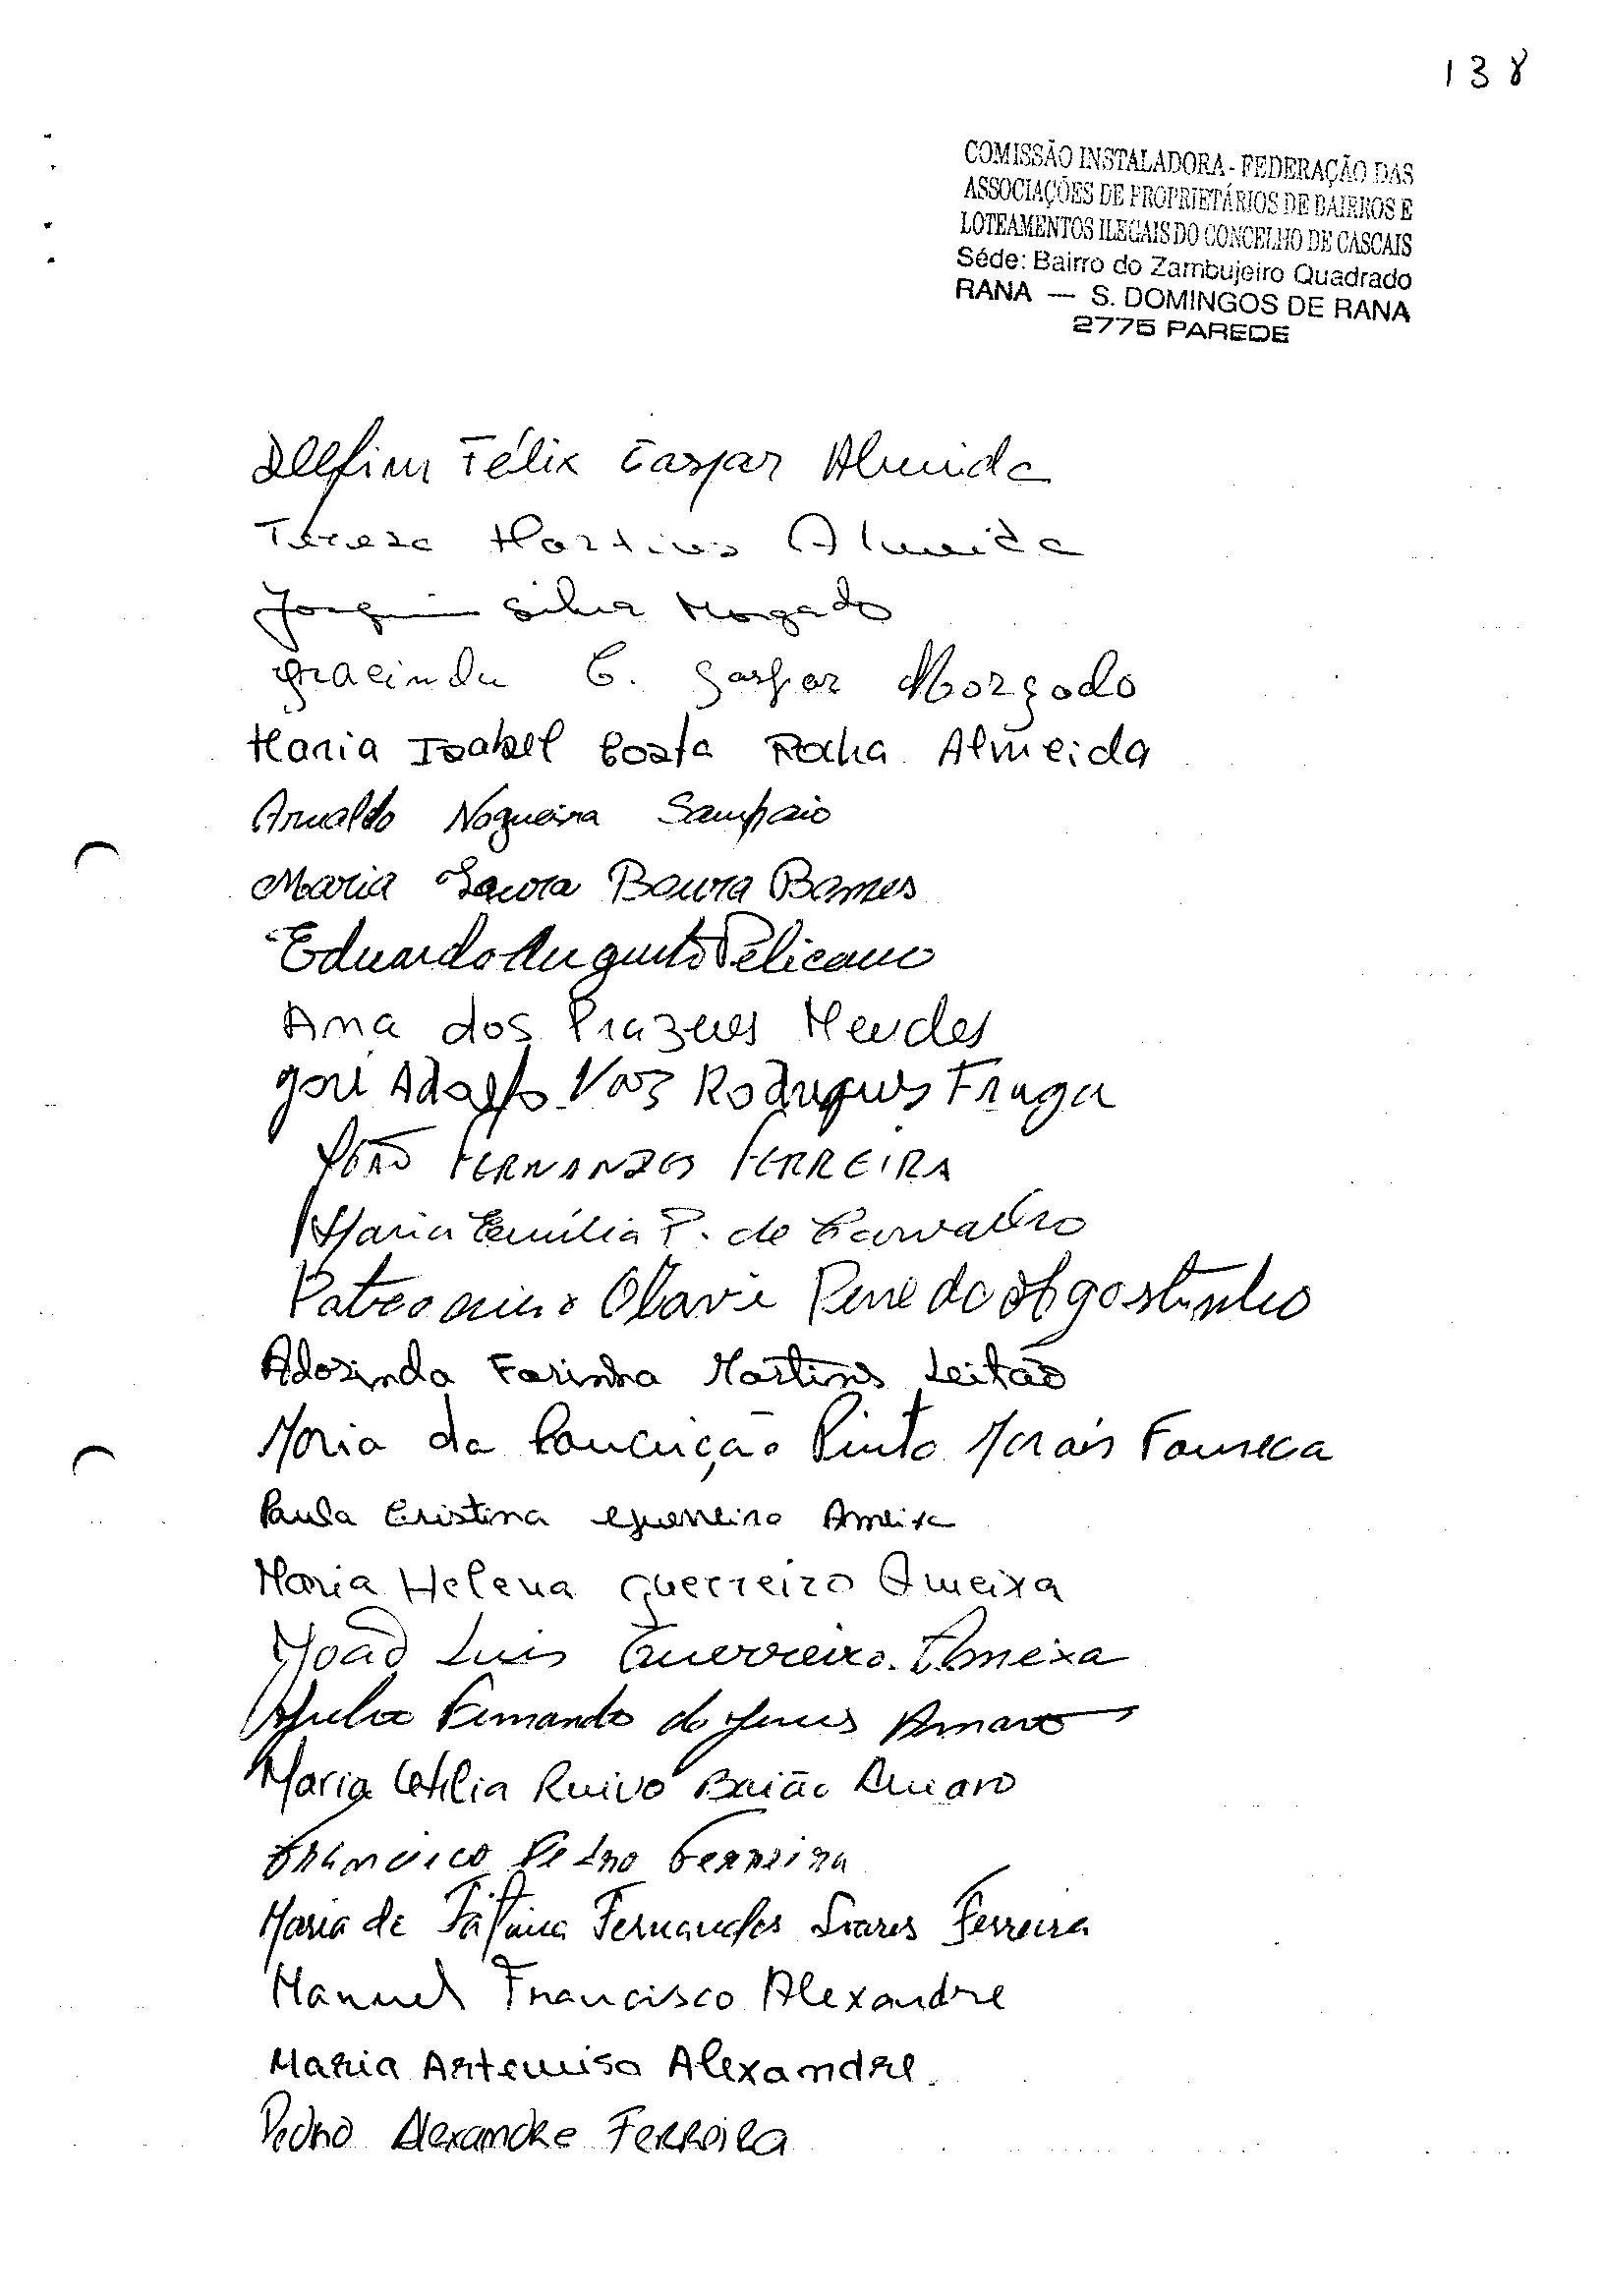 138
COMISSÃO INSTALADORA - FEDERAÇÃO DAS
ASSOCIAÇÕES DE PROPRIETÁRIOS DE BAIRROS E
LOTEAMENTOS ILEGAIS DO CONCELHO DE CASCAIS
Séde: Bairro do Zambujeiro Quadrado
RANA — S. DOMINGOS DE RANA
2775 PAREDE
Delfim Félix Gaspar Almeida
Tereza Martins Almeida
Joaquim Silva Morgado
Gracinda C. Gaspar Morgado
Maria Isabel Costa Rocha Almeida
Arnaldo Nogueira Sampaio
Maria Laura Boura
Eduardo Augusto Pelicano
Ana dos Prazeres Mendes
José Adolfo Vaz Rodrigues Fraga
JOÃO FERNANDES FERREIRA
Maria Emília P. de Carvalho
Olavie Penedo Agostinho
Adozinda Farinha Martins Leitão
Maria da Conceição Pinto Morais Fonseca
Paula Cristina Guerreiro Ameixa
Maria Helena Guerreiro Ameixa
João Luis Guerreiro Ameixa
Fernando de Jesus Amaro
Maria Ruivo Baião Amaro
Francisco Pedro Ferreira
Maria de Fátima Fernandes Soares Ferreira
Manuel Francisco Alexandre
Maria Artemisa Alexandre.
Pedro Alexandre Ferreira